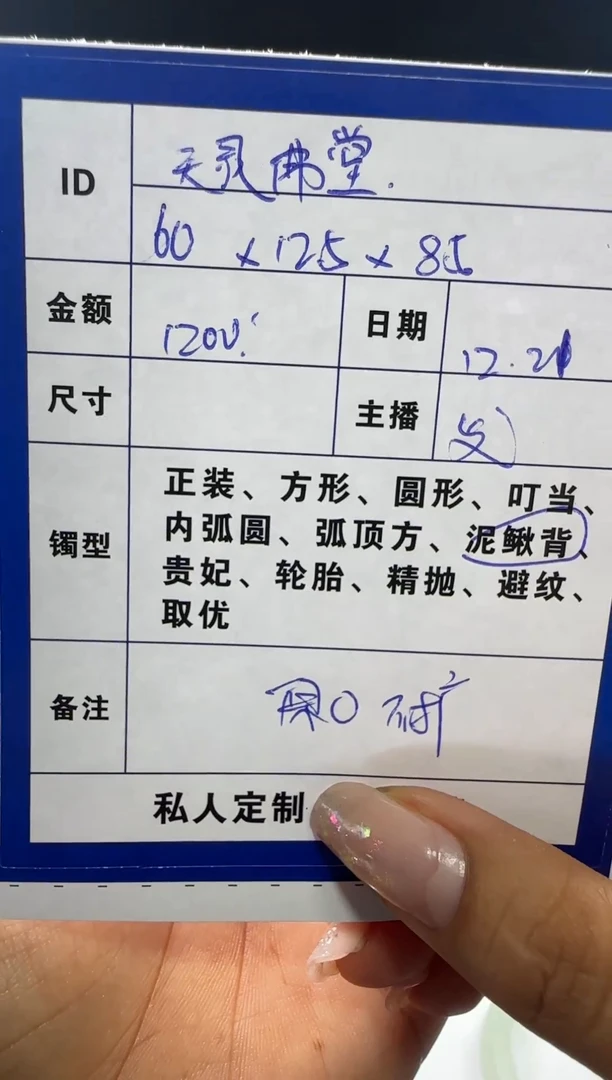 ID 天灵佛堂.
60 x 125 x 85
金额 1200. 日期 12.21
尺寸 主播
镯型 正装、方形、圆形、叮当、
内弧圆、弧顶方、泥鳅背、
贵妃、轮胎、精抛、避纹、
取优
备注
私人定制